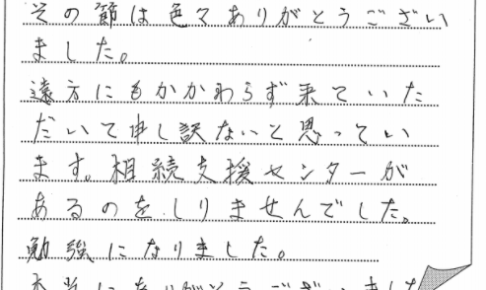 その節は色々ありがとうござい
ました。
遠方にもかかわらず来ていた
だいて申し訳ないと思ってい
ます。相続支援センターが
あるのをしりませんでした。
勉強になりました。
本当にありがとうございました